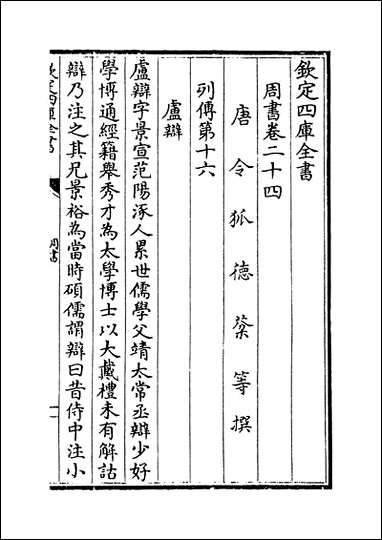 欽定四庫全書
周書卷二十四
唐令狐德棻等撰
列傳第十六
盧辯
盧辯字景宣范陽涿人累世儒學父靖太常丞辯少好
學博通經籍舉秀才為太學博士以大戴禮未有解詁
辯乃注之其兄景裕為當時碩儒謂辯曰昔侍中注小
欽定四庫全書
周書
一